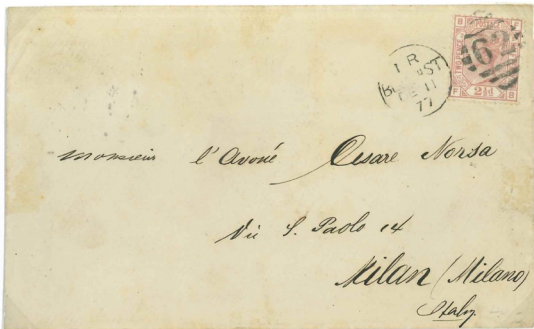 B F
62
2½
F B
1 R
ST
FE 11
77
Monsieur l'Avoué Cesare Norsa
Via S. Paolo 14
Milan (Milano)
Italy